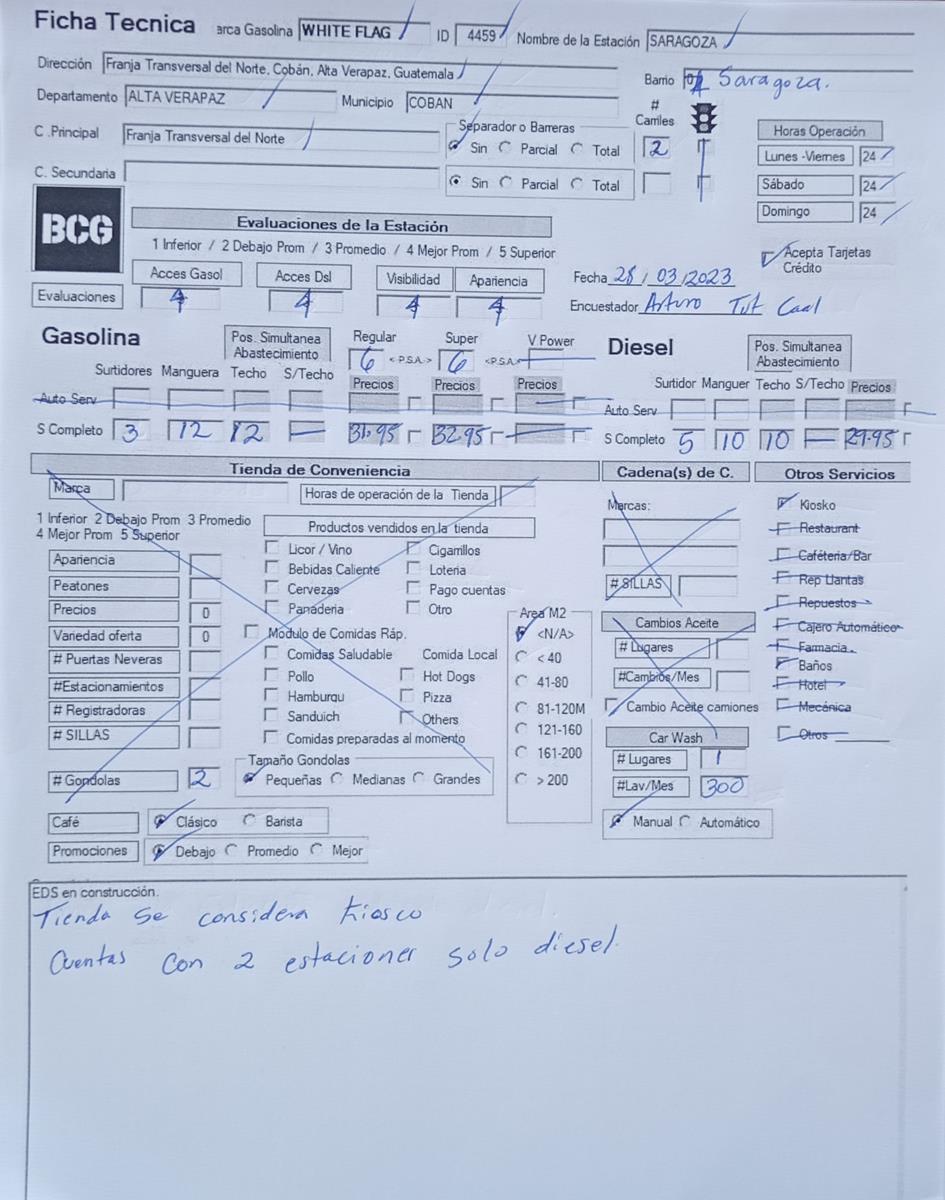 Ficha Tecnica arca Gasolina WHITE FLAG ID 4459 Nombre de la Estación SARAGOZA
Dirección Franja Transversal del Norte, Cobán, Alta Verapaz, Guatemala Barrio Saragoza.
Departamento ALTA VERAPAZ Municipio COBAN # Carriles
C .Principal Franja Transversal del Norte Separador o Barreras Sin Parcial Total 2
C. Secundaria Sin Parcial Total
Horas Operación
Lunes -Viernes 24
Sábado 24
Domingo 24
BCG
Evaluaciones de la Estación
1 Inferior / 2 Debajo Prom / 3 Promedio / 4 Mejor Prom / 5 Superior
Acepta Tarjetas Crédito
Acces Gasol Acces Dsl Visibilidad Apariencia
Evaluaciones 4 4 4 4
Fecha 28/03/2023
Encuestador Arturo Tut Caal
Gasolina Pos. Simultanea Abastecimiento Regular Super V Power
6 < P.S.A. > 6 <P.S.A>
Surtidores Manguera Techo S/Techo Precios Precios Precios
Auto Serv
S Completo 3 12 12 — 31.95 32.95 —
Diesel Pos. Simultanea Abastecimiento
Surtidor Manguer Techo S/Techo Precios
Auto Serv
S Completo 5 10 10 — 29.95
Tienda de Conveniencia
Marca Horas de operación de la Tienda
1 Inferior 2 Debajo Prom 3 Promedio
4 Mejor Prom 5 Superior
Apariencia
Peatones
Precios 0
Variedad oferta 0
# Puertas Neveras
#Estacionamientos
# Registradoras
# SILLAS
# Gondolas 2
Productos vendidos en la tienda
Licor / Vino Cigarrillos
Bebidas Caliente Loteria
Cervezas Pago cuentas
Panaderia Otro
Modulo de Comidas Ráp.
Comidas Saludable Comida Local
Pollo Hot Dogs
Hamburqu Pizza
Sanduich Others
Comidas preparadas al momento
Tamaño Gondolas
Pequeñas Medianas Grandes
Area M2
<N/A>
< 40
41-80
81-120M
121-160
161-200
> 200
Café Clásico Barista
Promociones Debajo Promedio Mejor
Cadena(s) de C.
Marcas:
# SILLAS
Cambios Aceite
# Lugares
#Cambios/Mes
Cambio Aceite camiones
Car Wash
# Lugares 1
#Lav/Mes 300
Manual Automático
Otros Servicios
Kiosko
Restaurant
Caféteria/Bar
Rep Llantas
Repuestos
Cajero Automático
Farmacia
Baños
Hotel
Mecánica
Otros
EDS en construcción.
Tienda se considera kiosco
Cuentas con 2 estacioner solo diesel.